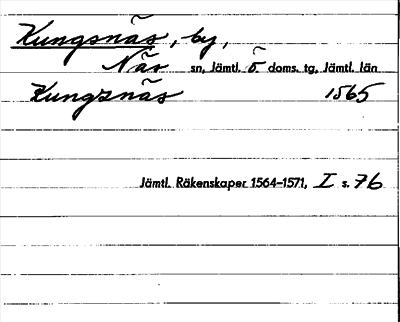 Kungsnäs, by,
Näs sn, Jämtl. ö. doms. tg, Jämtl. län
Kungznäs 1565
Jämtl. Räkenskaper 1564-1571, I s. 76